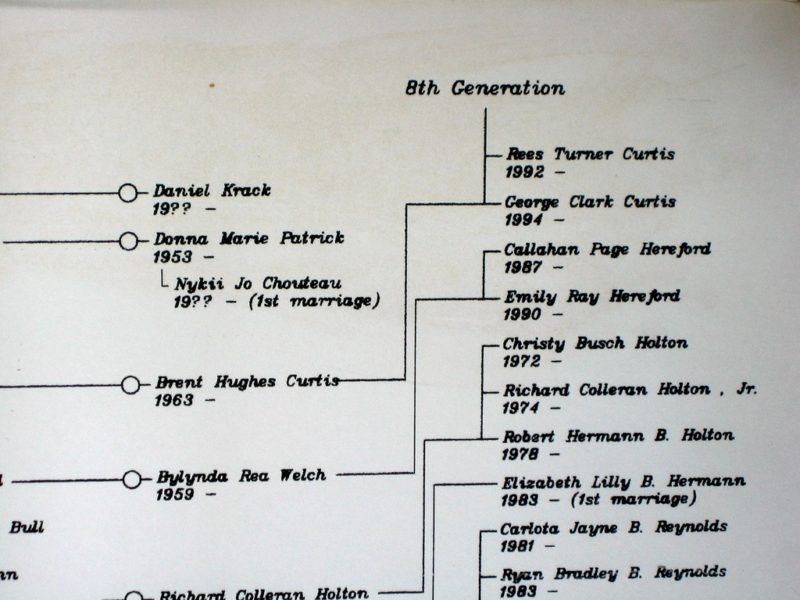 8th Generation
Rees Turner Curtis
1992 -
George Clark Curtis
1994 -
Callahan Page Hereford
1987 -
Emily Ray Hereford
1990 -
Christy Busch Holton
1972 -
Richard Colleran Holton , Jr.
1974 -
Robert Hermann B. Holton
1978 -
Elizabeth Lilly B. Hermann
1983 - (1st marriage)
Carlota Jayne B. Reynolds
1981 -
Ryan Bradley B. Reynolds
1983 -
Daniel Krack
19?? -
Donna Marie Patrick
1953 -
Nykii Jo Chouteau
19?? - (1st marriage)
Brent Hughes Curtis
1963 -
Bylynda Rea Welch
1959 -
Bull
Richard Colleran Holton